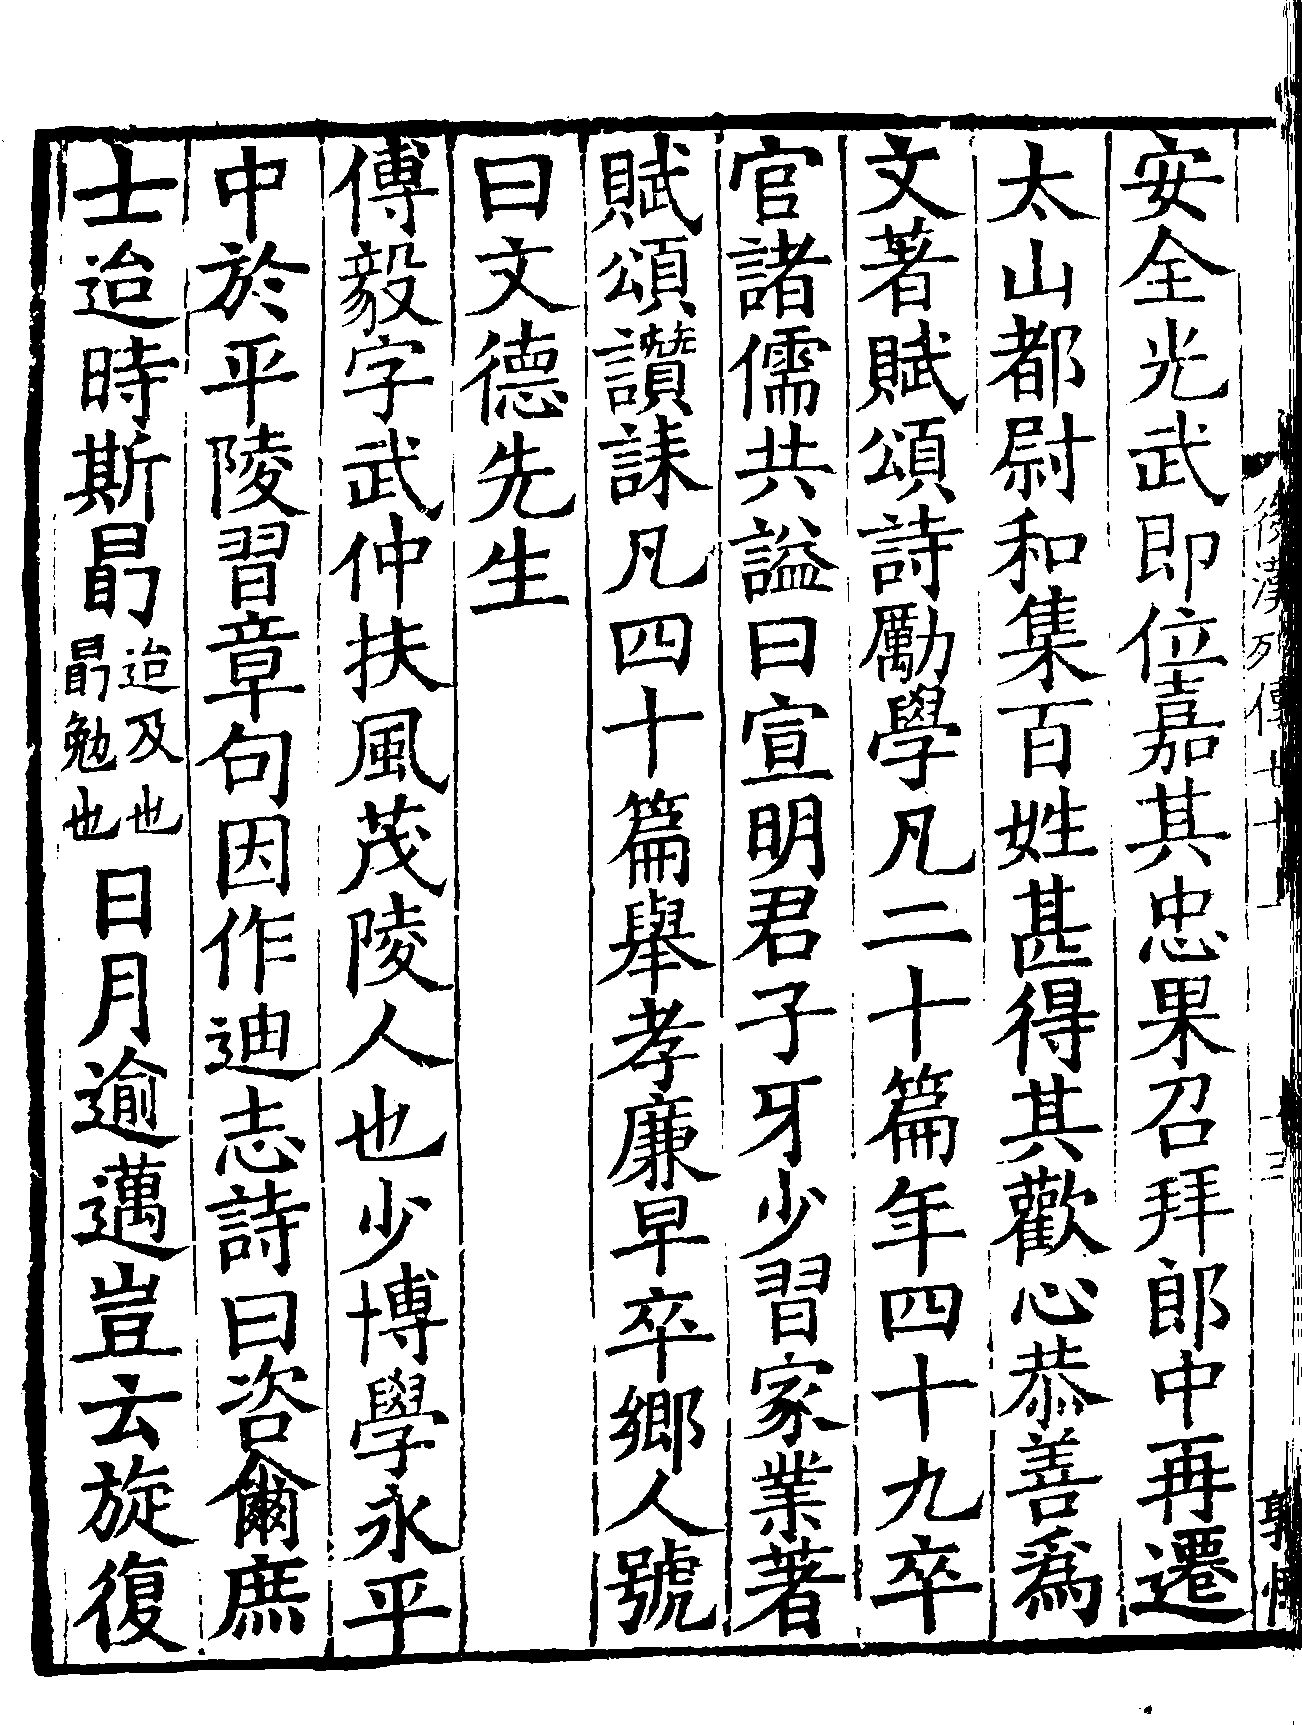 後漢列傳七十上
十三
安全光武即位嘉其忠果召拜郎中再遷
太山都尉和集百姓甚得其歡心恭善爲
文著賦頌詩勵學凡二十篇年四十九卒
官諸儒共謚曰宣明君子牙少習家業著
賦頌讚誄凡四十篇舉孝廉早卒鄉人號
曰文德先生
傅毅字武仲扶風茂陵人也少博學永平
中於平陵習章句因作迪志詩曰咨爾庶
士迨時斯勗迨及也勗勉也日月逾邁豈云旋復